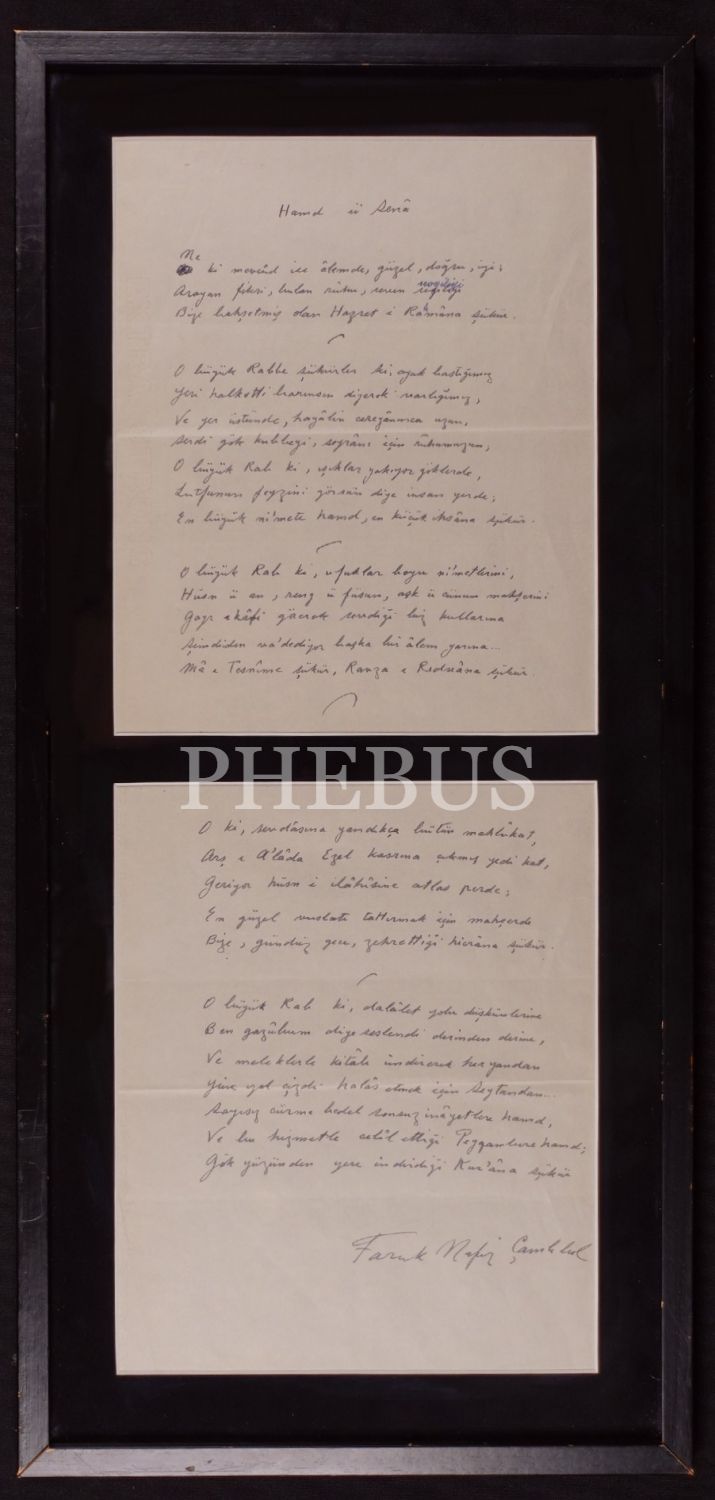 Hamd ü Senâ
Ne
ki mevcûd ise âlemde, güzel, doğru, iyi;
Arayan fikri, bulan rûhu, seven sevgiliyi
Bize bahşetmiş olan Hazret i Rahmâna şükür.
O büyük Rabbe şükürler ki, ayak bastığımız
Yeri halketti barınsın diyerek varlığımız,
Ve yer üstünde, hayâlin uzun,
Serdi gök kubbeyi, seyrânı için rûhumuzun;
O büyük Rab ki, ışıklar yakıyor göklerde,
Lutfunun feyzini görsün diye insan yerde;
En büyük ni'mete hamd, en küçük ihsâna şükür.
O büyük Rab ki, ufuklar boyu ni'metlerini,
Hüsn ü an, reng ü füsun, aşk ü cünun mahşerini
Gayr ı kâfi görerek sevdiği biz kullarına
Şimdiden va'dediyor başka bir âlem yarına...
Mâ i Tesnîme şükür, Ravza i Rıdvâna şükür.
PHEBUS
O ki, sevdâsına yandıkça bütün mahlûkat,
Arş ı A'lâda Ezel kasrına çıkmış yedi kat,
Geriyor hüsn i ilâhîsine atlas perde;
En güzel vuslatı tattırmak için mahşerde
Bize, gündüz gece, zehrettiği hicrâna şükür.
O büyük Rab ki, dalâlet yolu düşkünlerine
Ben gazûbum diye seslendi derinden derine,
Ve meleklerle kitâb indirerek her yandan
Yine yol çizdi halâs etmek için Şeytandan...
Sayısız cürme bedel sonsuz inâyetlere hamd,
Ve bu hizmetle celîl ettiği Peygambere hamd;
Gök yüzünden yere indirdiği Kur'âna şükür
Faruk Nafiz Çamlıbel